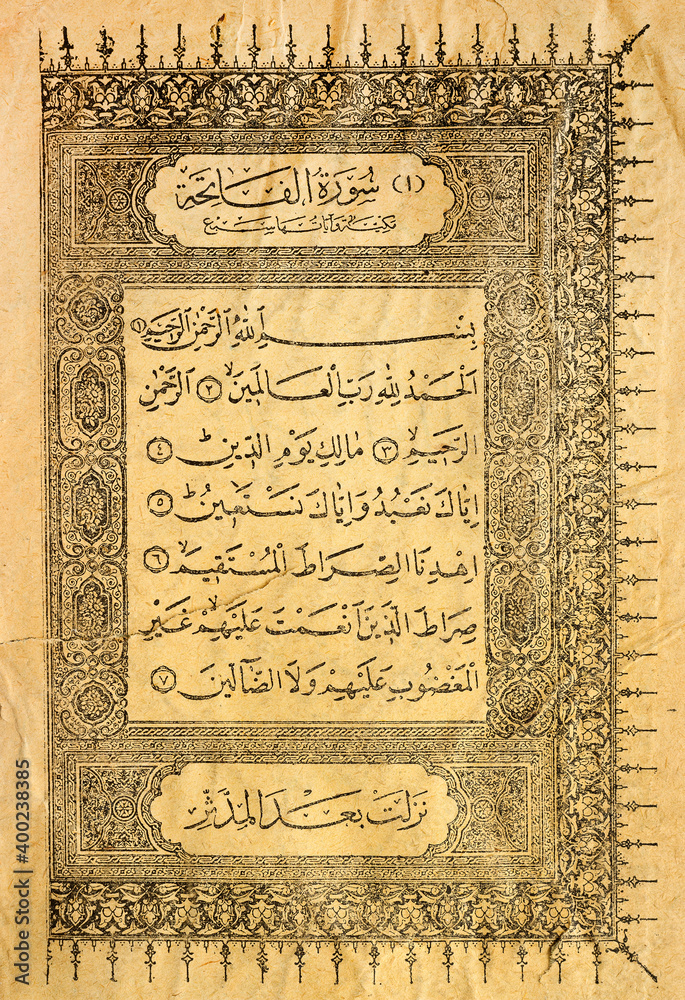 (١) سُورَةُ الفَاتِحَة
مكيّة وآياتها سبع
بِسْمِ ٱللَّهِ ٱلرَّحْمٰنِ ٱلرَّحِيمِ ١
اَلْحَمْدُ لِلّٰهِ رَبِّ الْعَالَمِينَ ٢ اَلرَّحْمٰنِ
الرَّحِيمِ ٣ مَالِكِ يَوْمِ الدِّينِ ط ٤
اِيَّاكَ نَعْبُدُ وَاِيَّاكَ نَسْتَعِينُ ط ٥
اِهْدِنَا الصِّرَاطَ الْمُسْتَقِيمَ ٦
صِرَاطَ الَّذِينَ اَنْعَمْتَ عَلَيْهِمْ غَيْرِ
الْمَغْضُوبِ عَلَيْهِمْ وَلَا الضَّآلِّينَ ٧
نَزَلَتْ بَعْدَ المُدَّثِّرِ
Adobe Stock | #400238385